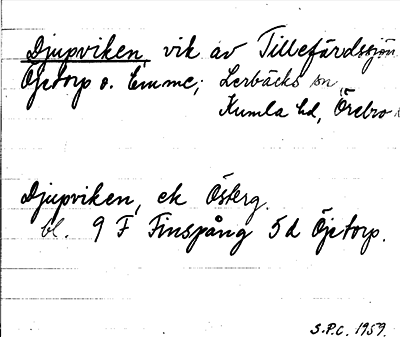 Djupviken, vik av Tillefärdssjön
Öjetorp o. Emme; Lerbäcks sn
Kumla hd, Örebro
Djupviken, ek Österg.
bl. 9 F Finspång 5d Öjetorp.
S.P.C. 1959.